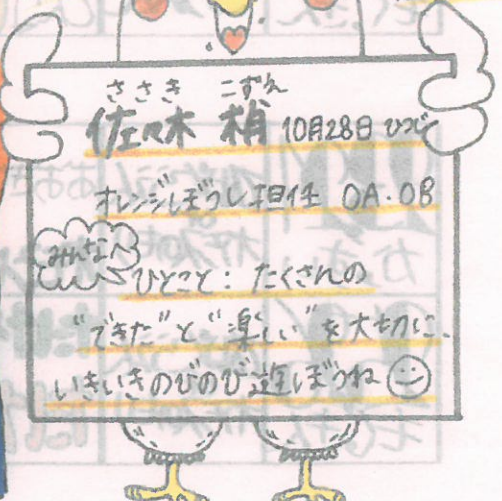 ささき こずえ
佐々木 梢 10月28日 ひつじ
オレンジぼうし担任 OA.OB
みんなへ
ひとこと: たくさんの
"できた"と"楽しい"を大切に、
いきいきのびのび遊ぼうね